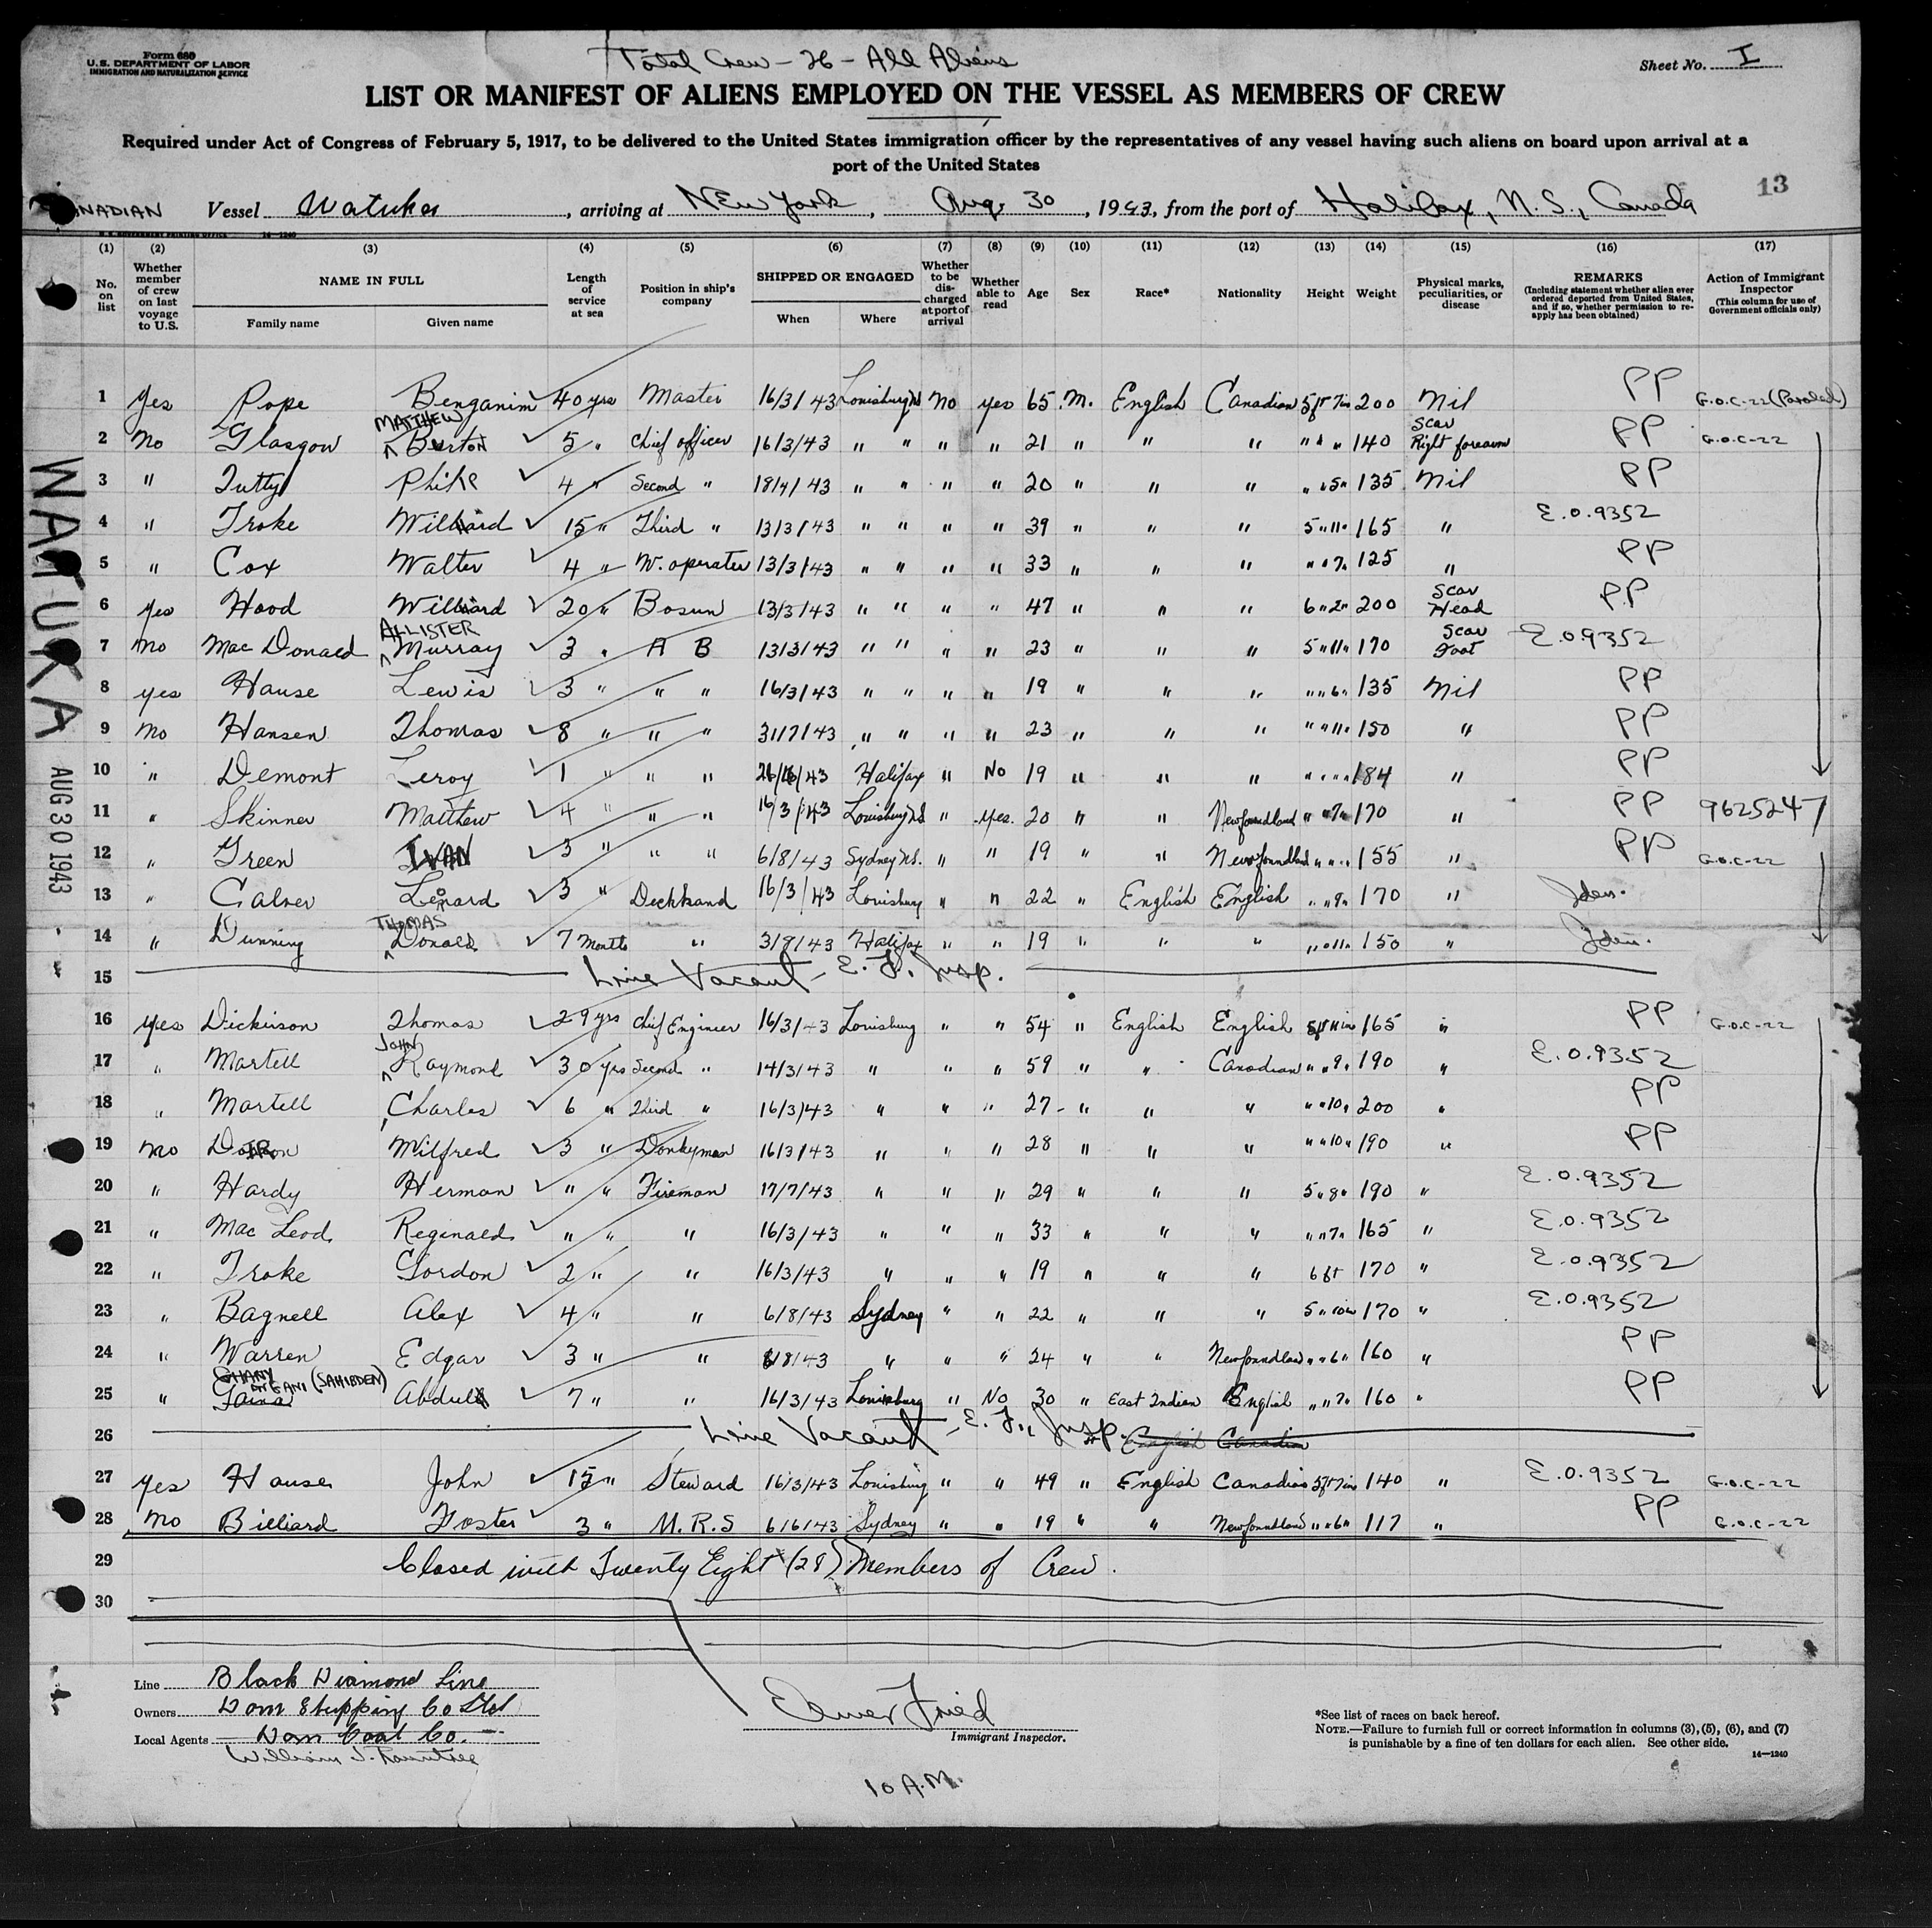 Form 680
U.S. DEPARTMENT OF LABOR
IMMIGRATION AND NATURALIZATION SERVICE
Total Crew - 26 - All Aliens
Sheet No. I
LIST OR MANIFEST OF ALIENS EMPLOYED ON THE VESSEL AS MEMBERS OF CREW
Required under Act of Congress of February 5, 1917, to be delivered to the United States immigration officer by the representatives of any vessel having such aliens on board upon arrival at a
port of the United States
13
CANADIAN Vessel Watuka, arriving at New York, Aug. 30, 1943, from the port of Halifax, N.S., Canada
(1) (2) (3) (4) (5) (6) (7) (8) (9) (10) (11) (12) (13) (14) (15) (16) (17)
No. on list
Whether member of crew on last voyage to U.S.
NAME IN FULL
Family name
Given name
Length of service at sea
Position in ship's company
SHIPPED OR ENGAGED
When
Where
Whether to be discharged at port of arrival
Whether able to read
Age
Sex
Race*
Nationality
Height
Weight
Physical marks, peculiarities, or disease
REMARKS
(Including statement whether alien ever ordered deported from United States, and if so, whether permission to re-apply has been obtained)
Action of Immigrant Inspector
(This column for use of Government officials only)
1 Yes Pope Benganim 40 yrs Master 16/3/43 Louisburg NS No yes 65 M. English Canadian 5 ft 7 in 200 Nil PP G.O.C-22 (Paroled)
2 No Glasgow MATTHEW Burton 5 " Chief officer 16/3/43 " " " " 21 " " " " " " 140 Scar Right forearm PP G.O.C-22
3 " Tutty Philip 4 " Second " 18/4/43 " " " " 20 " " " " 5 " 135 Nil PP
4 " Troke Williard 15 " Third " 13/3/43 " " " " 39 " " " 5 " 11 " 165 " E.O.9352
5 " Cox Walter 4 " W. operater 13/3/43 " " " " 33 " " " " " 7 " 125 " PP
6 yes Hood Williard 20 " Bosun 13/3/43 " " " " 47 " " " 6 " 2 " 200 Scar Head PP
7 No Mac Donald ALLISTER Murray 3 " A B 13/3/43 " " " " 23 " " " 5 " 11 " 170 Scar Foot E.O.9352
8 yes Hause Lewis 3 " " " 16/3/43 " " " " 19 " " " " " 6 " 135 Nil PP
9 No Hansen Thomas 8 " " " 31/7/43 " " " " 23 " " " " " 11 " 150 " PP
10 " Demont Leroy 1 " " " /43 Halifax " No 19 " " " " " " " 184 " PP
11 " Skinner Matthew 4 " " " 16/3/43 Louisburg NS " yes. 20 " " Newfoundland " " 7 " 170 " PP 9625247
12 " Green IVAN 3 " " " 6/8/43 Sydney NS. " " 19 " " Newfoundland " " " " 155 " PP G.O.C-22
13 " Calver Lenard 3 " Deckhand 16/3/43 Louisburg " " 22 " English English " " 9 " 170 " Iden.
14 " Dunning THOMAS Donald 7 Months " 3/8/43 Halifax " " 19 " " " " " 11 " 150 " Iden.
15 Line Vacant - E. F. Insp.
16 yes Dickinson Thomas 29 yrs Chief Engineer 16/3/43 Louisburg " " 54 " English English 5 ft 11 in 165 " PP G.O.C-22
17 " Martell JOHN Raymond 30 yrs Second " 14/3/43 " " " 59 " " Canadian " " 9 " 190 " E.O.9352
18 " Martell Charles 6 " Third " 16/3/43 " " " 27 " " " " " 10 " 200 " PP
19 No Milfred 3 " Donkyman 16/3/43 " " " 28 " " " " " 10 " 190 " PP
20 " Hardy Herman " " Fireman 17/7/43 " " " 29 " " " 5 " 8 " 190 " E.O.9352
21 " Mac Leod Reginald " " " 16/3/43 " " " 33 " " " " " 7 " 165 " E.O.9352
22 " Troke Gordon 2 " " 16/3/43 " " " 19 " " " 6 ft 170 " E.O.9352
23 " Bagnell Alex 4 " " 6/8/43 Sydney " " 22 " " " 5 " 10 in 170 " E.O.9352
24 " Warren Edgar 3 " " 6/8/43 " " " 24 " " Newfoundland " " 6 " 160 " PP
25 " GHANY or GANI (SAHIBDEN) Abdul 7 " " 16/3/43 Louisburg " No 30 " East Indian English " " 7 " 160 " PP
26 Line Vacant - E. F., Insp. English Canadian
27 Yes Hause John 15 " Steward 16/3/43 Louisburg " " 49 " English Canadian 5 ft 7 in 140 " E.O.9352 G.O.C-22
28 No Billiard Foster 3 " M.R.S 6/6/43 Sydney " " 19 " " Newfoundland " " 6 " 117 " PP G.O.C-22
29 Closed with Twenty Eight (28) Members of Crew.
30
WATUKA
AUG 30 1943
Line Black Diamond Line
Owners Dom Shipping Co Ltd
Local Agents Dom Coal Co.
William J. Rountree
Elmer Fried
Immigrant Inspector.
10 A.M.
*See list of races on back hereof.
NOTE.—Failure to furnish full or correct information in columns (3), (5), (6), and (7)
is punishable by a fine of ten dollars for each alien. See other side.
14—1240